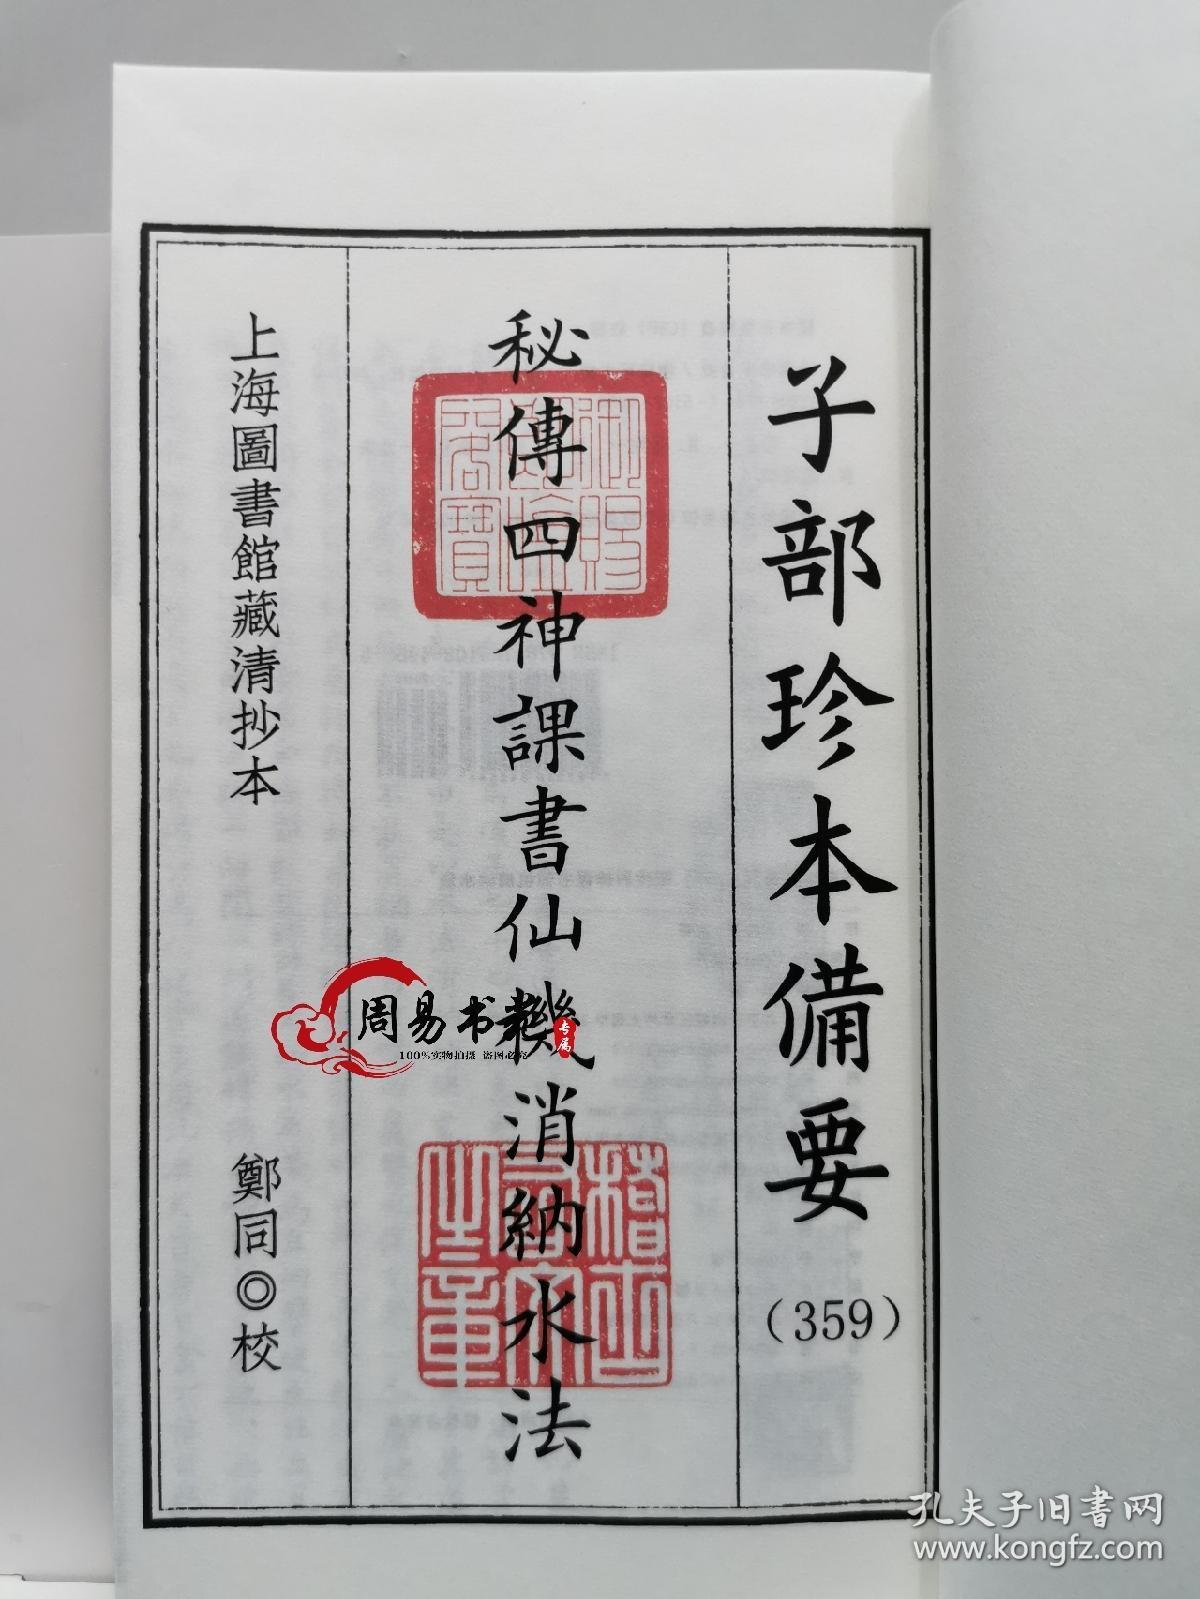 子部珍本備要（359）
秘傳四神課書仙機消納水法
上海圖書館藏清抄本
鄭同◎校
周易书
专属
100%实物拍摄 盗图必究
孔夫子旧书网
www.kongfz.com